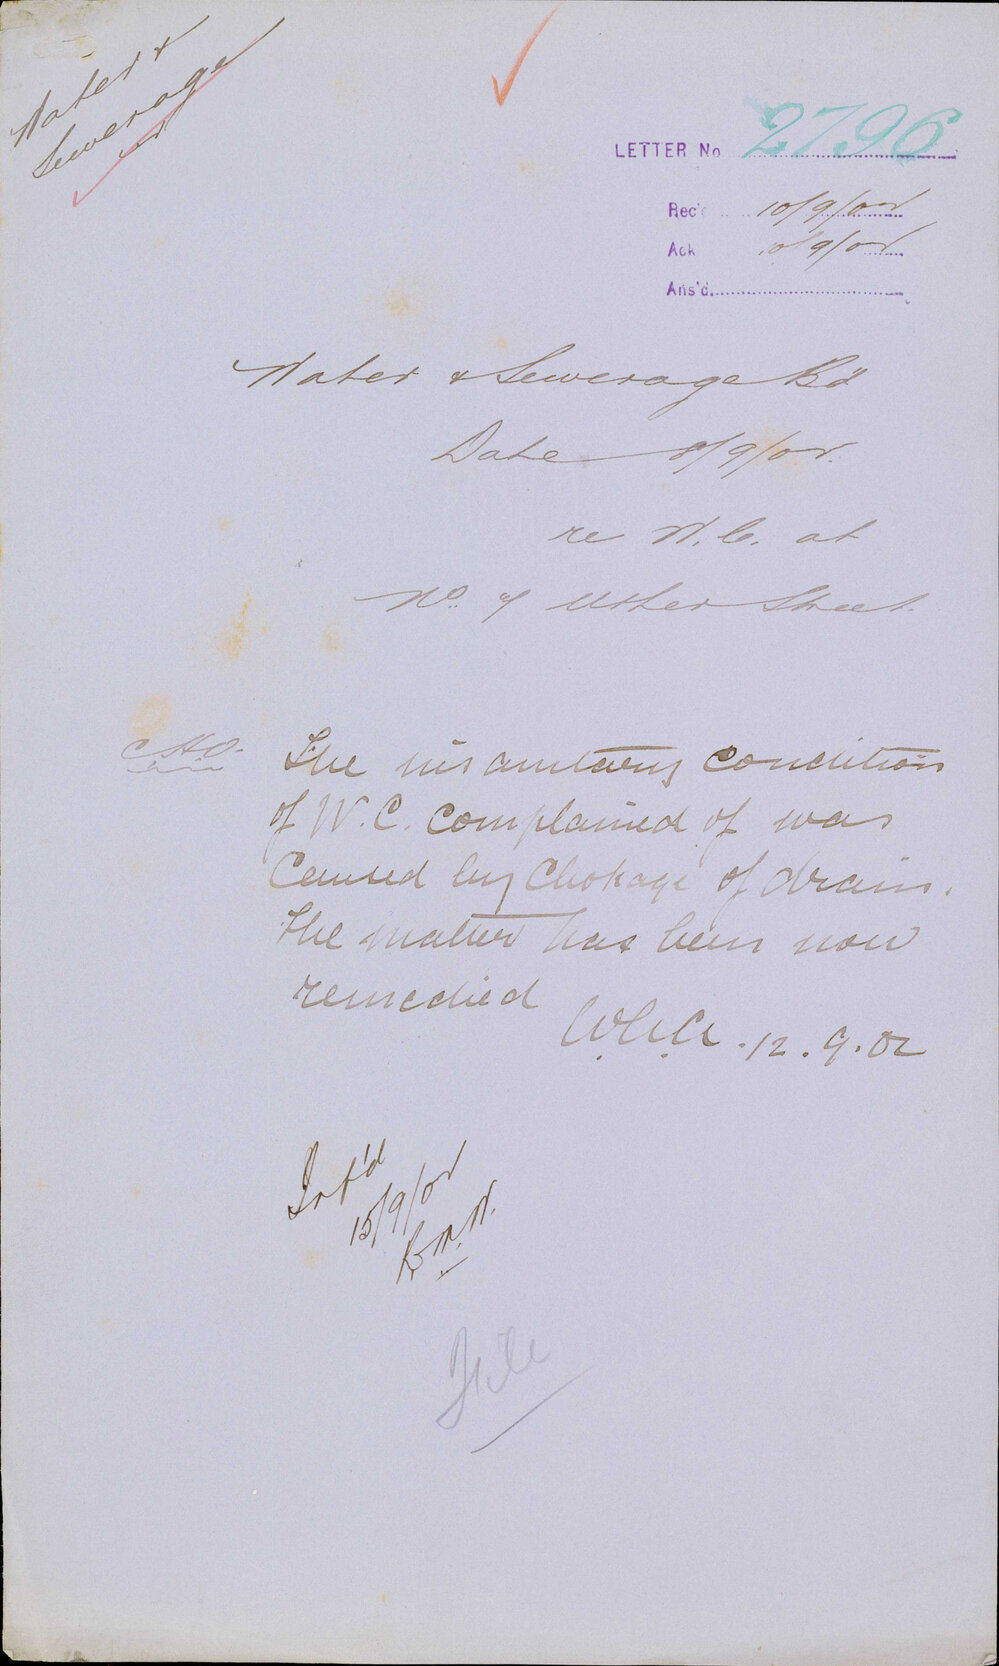 Water &
Sewerage
LETTER No 2796
Rec'd 10/9/02
Ack 10/9/02
Ans'd.
Water & Sewerage Bd
Date 8/9/02.
re W.C. at
No. 7 Usher Street.
C.H.O.
The insanitary condition
of W.C. complained of was
Caused by Chokage of drain.
The matter has been now
remedied
12.9.02
Int'd
15/9/02
File